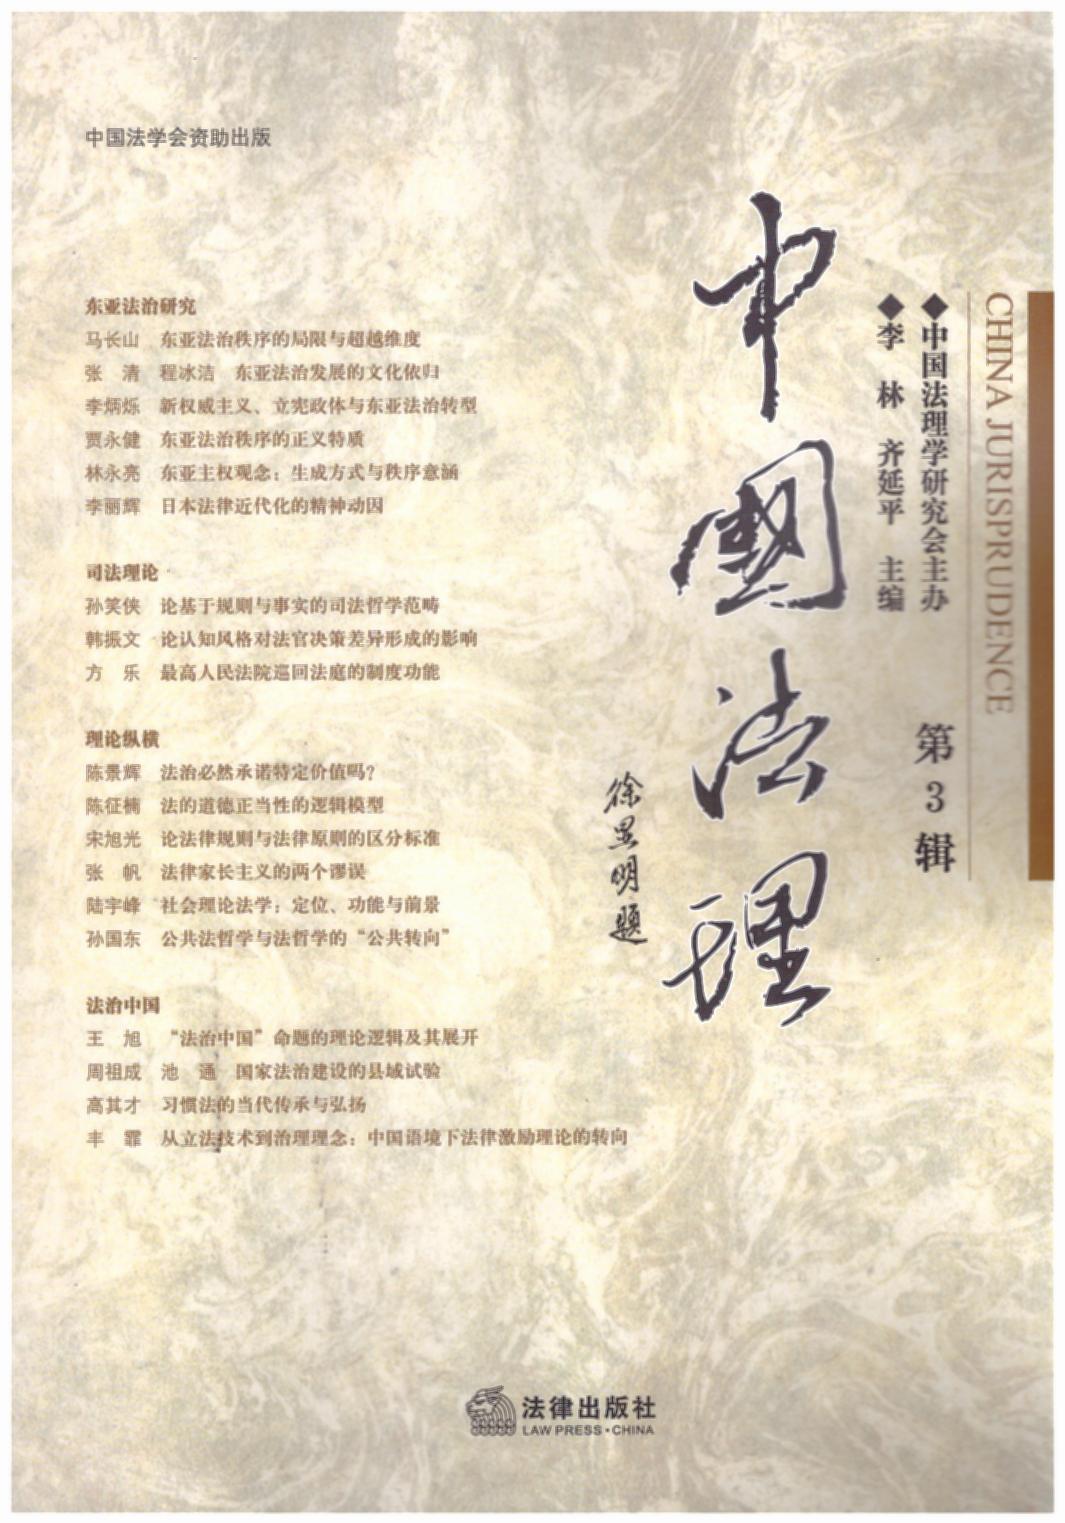 中国法学会资助出版
东亚法治研究
马长山 东亚法治秩序的局限与超越维度
张 清 程冰洁 东亚法治发展的文化依归
李炳烁 新权威主义、立宪政体与东亚法治转型
贾永健 东亚法治秩序的正义特质
林永亮 东亚主权观念：生成方式与秩序意涵
李丽辉 日本法律近代化的精神动因
司法理论
孙笑侠 论基于规则与事实的司法哲学范畴
韩振文 论认知风格对法官决策差异形成的影响
方 乐 最高人民法院巡回法庭的制度功能
理论纵横
陈景辉 法治必然承诺特定价值吗？
陈征楠 法的道德正当性的逻辑模型
宋旭光 论法律规则与法律原则的区分标准
张 帆 法律家长主义的两个谬误
陆宇峰 社会理论法学：定位、功能与前景
孙国东 公共法哲学与法哲学的“公共转向”
法治中国
王 旭 “法治中国”命题的理论逻辑及其展开
周祖成 池 通 国家法治建设的县域试验
高其才 习惯法的当代传承与弘扬
丰 霏 从立法技术到治理理念：中国语境下法律激励理论的转向
中國法理
徐显明题
◆中国法理学研究会主办
◆李 林 齐延平 主编
第3辑
CHINA JURISPRUDENCE
法律出版社
LAW PRESS·CHINA